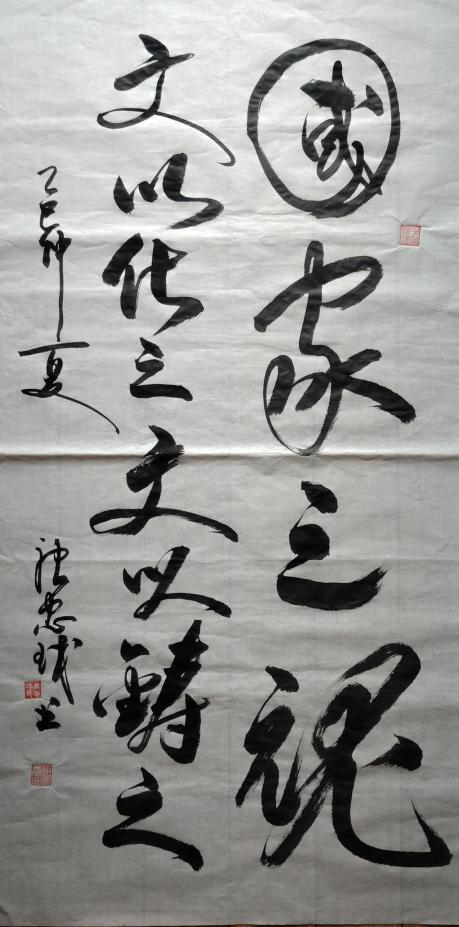 國家之魂
文以化之文以鑄之
乙巳仲夏
張忠城书